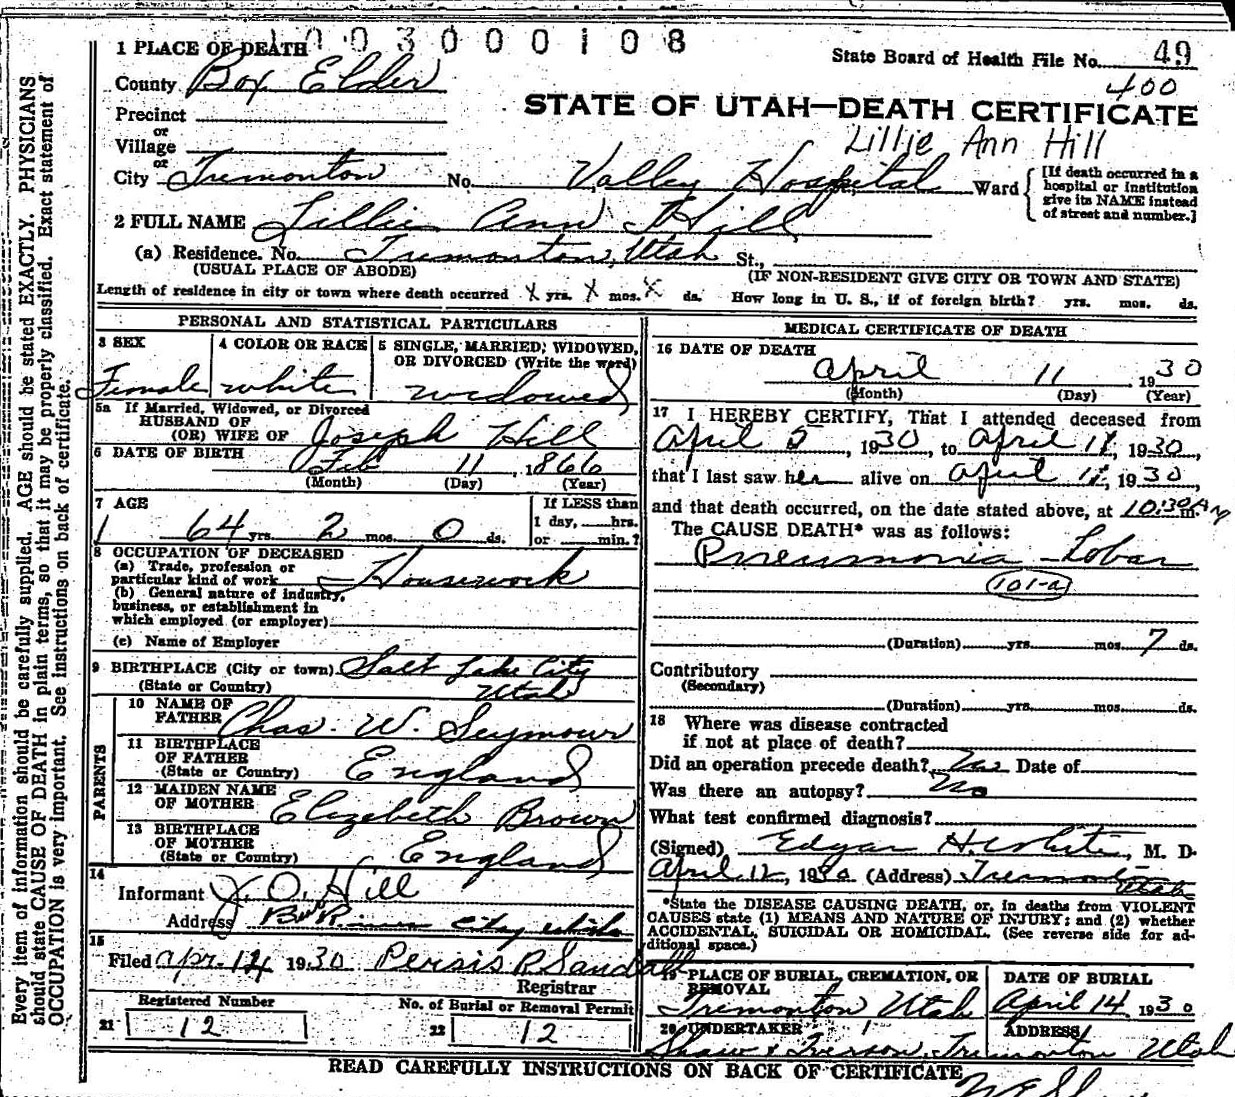 1003000108
1 PLACE OF DEATH
State Board of Health File No. 49
County Box Elder
400
STATE OF UTAH—DEATH CERTIFICATE
Precinct
or
Village
Lillie Ann Hill
or
City Tremonton No. Valley Hospital Ward
[If death occurred in a hospital or institution give its NAME instead of street and number.]
2 FULL NAME Lillie Ann Hill
(a) Residence. No. Tremonton, Utah St.,
(USUAL PLACE OF ABODE) (IF NON-RESIDENT GIVE CITY OR TOWN AND STATE)
Length of residence in city or town where death occurred X yrs. X mos. X ds. How long in U. S., if of foreign birth? yrs. mos. ds.
PERSONAL AND STATISTICAL PARTICULARS
3 SEX 4 COLOR OR RACE 5 SINGLE, MARRIED, WIDOWED,
OR DIVORCED (Write the word)
Female white widowed
5a If Married, Widowed, or Divorced
HUSBAND OF
(OR) WIFE OF Joseph Hill
6 DATE OF BIRTH Feb 11 1866
(Month) (Day) (Year)
7 AGE If LESS than
64 yrs. 2 mos. 0 ds. 1 day, hrs.
or min.?
8 OCCUPATION OF DECEASED
(a) Trade, profession or
particular kind of work Housework
(b) General nature of industry,
business, or establishment in
which employed (or employer)
(c) Name of Employer
9 BIRTHPLACE (City or town) Salt Lake City
(State or Country) Utah
PARENTS
10 NAME OF
FATHER Chas. W. Seymour
11 BIRTHPLACE
OF FATHER
(State or Country) England
12 MAIDEN NAME
OF MOTHER Elizabeth Brown
13 BIRTHPLACE
OF MOTHER
(State or Country) England
14
Informant J. O. Hill
Address City
15
Filed Apr. 14 1930 Persis R Sandall
Registrar
Registered Number No. of Burial or Removal Permit
21 12 22 12
MEDICAL CERTIFICATE OF DEATH
16 DATE OF DEATH
April 11 1930
(Month) (Day) (Year)
17 I HEREBY CERTIFY, That I attended deceased from
April 5, 1930, to April 11, 1930,
that I last saw her alive on April 11, 1930,
and that death occurred, on the date stated above, at 10:30 A m.
The CAUSE DEATH* was as follows:
Pneumonia - Lobar
101-a
(Duration) yrs. mos. 7 ds.
Contributory
(Secondary)
(Duration) yrs. mos. ds.
18 Where was disease contracted
if not at place of death?
Did an operation precede death? No Date of
Was there an autopsy? No
What test confirmed diagnosis?
(Signed) Edgar H. White, M. D.
April 12, 1930 (Address) Tremonton Utah
*State the DISEASE CAUSING DEATH, or, in deaths from VIOLENT
CAUSES state (1) MEANS AND NATURE OF INJURY; and (2) whether
ACCIDENTAL, SUICIDAL OR HOMICIDAL. (See reverse side for ad-
ditional space.)
19 PLACE OF BURIAL, CREMATION, OR DATE OF BURIAL
REMOVAL
Tremonton Utah April 14 1930
20 UNDERTAKER ADDRESS
Shaw & Iverson, Tremonton Utah
READ CAREFULLY INSTRUCTIONS ON BACK OF CERTIFICATE
Every item of information should be carefully supplied. AGE should be stated EXACTLY. PHYSICIANS
should state CAUSE OF DEATH in plain terms, so that it may be properly classified. Exact statement of
OCCUPATION is very important. See instructions on back of certificate.